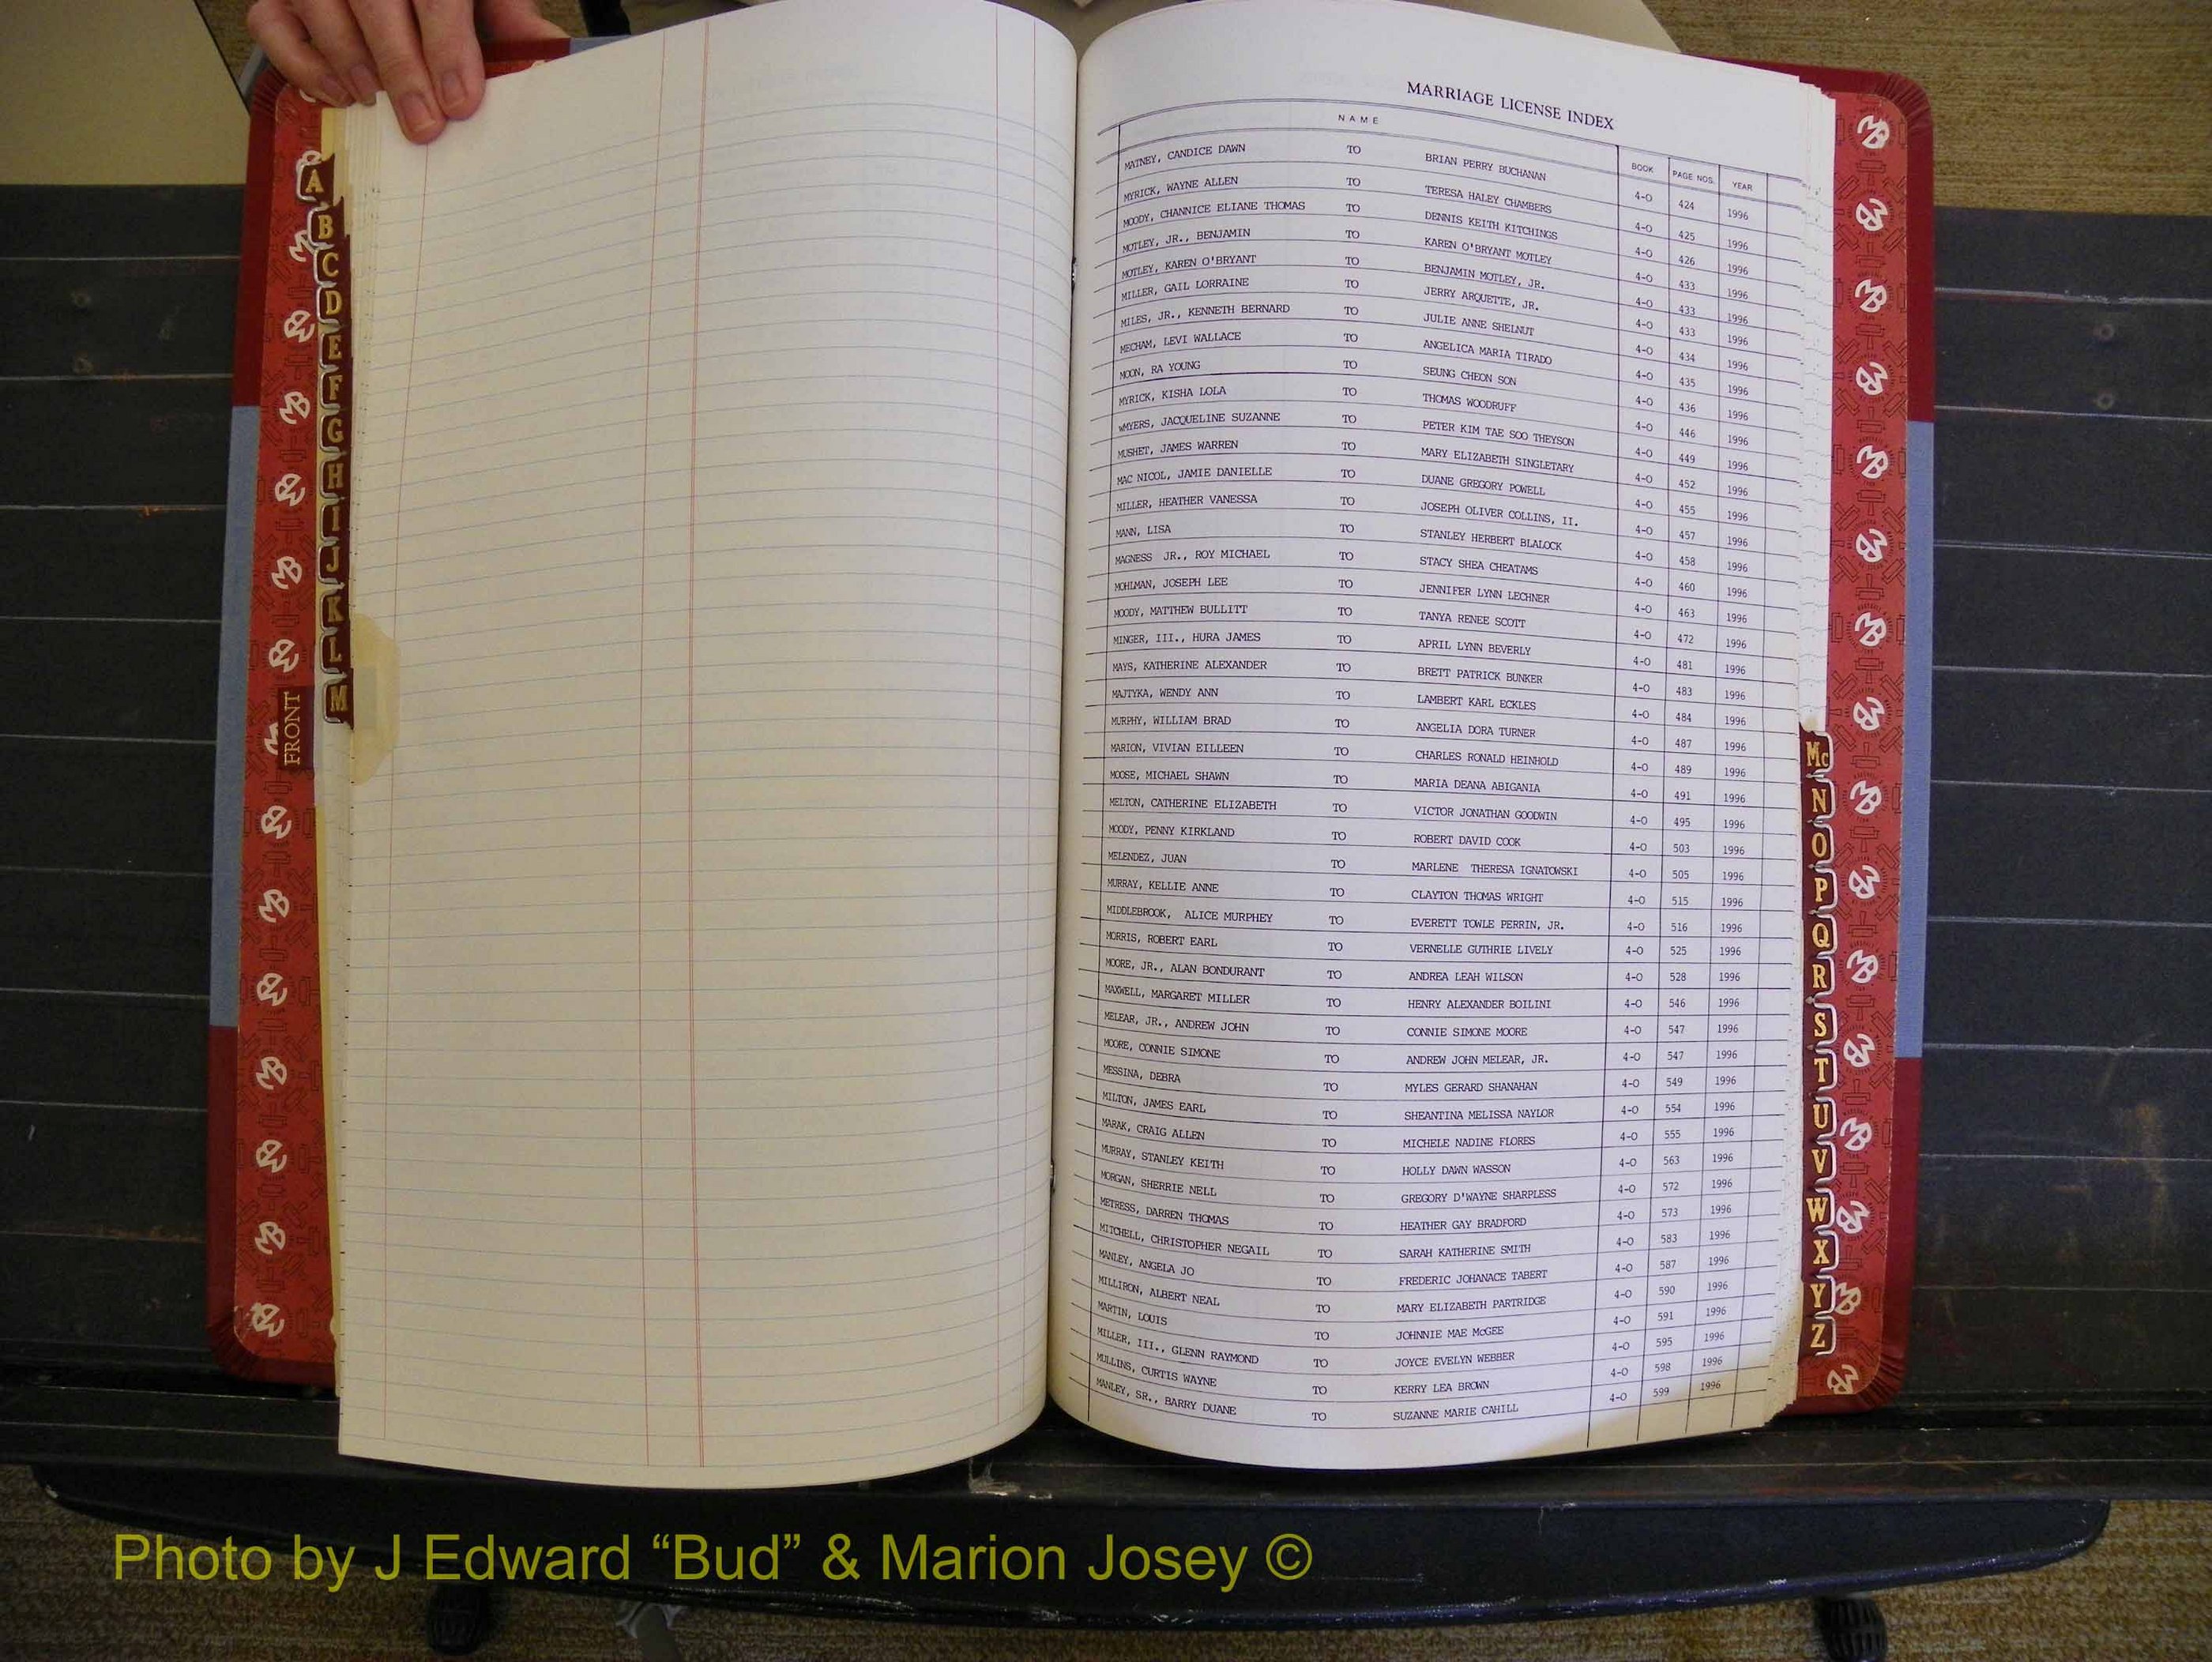 MARRIAGE LICENSE INDEX
NAME BOOK PAGE NOS. YEAR
MATNEY, CANDICE DAWN TO BRIAN PERRY BUCHANAN 4-O 424 1996
MYRICK, WAYNE ALLEN TO TERESA HALEY CHAMBERS 4-O 425 1996
MOODY, CHANNICE ELIANE THOMAS TO DENNIS KEITH KITCHINGS 4-O 426 1996
MOTLEY, JR., BENJAMIN TO KAREN O'BRYANT MOTLEY 4-O 433 1996
MOTLEY, KAREN O'BRYANT TO BENJAMIN MOTLEY, JR. 4-O 433 1996
MILLER, GAIL LORRAINE TO JERRY ARQUETTE, JR. 4-O 433 1996
MILES, JR., KENNETH BERNARD TO JULIE ANNE SHELNUT 4-O 434 1996
MECHAM, LEVI WALLACE TO ANGELICA MARIA TIRADO 4-O 435 1996
MOON, RA YOUNG TO SEUNG CHEON SON 4-O 436 1996
MYRICK, KISHA LOLA TO THOMAS WOODRUFF 4-O 446 1996
wMYERS, JACQUELINE SUZANNE TO PETER KIM TAE SOO THEYSON 4-O 449 1996
MUSHET, JAMES WARREN TO MARY ELIZABETH SINGLETARY 4-O 452 1996
MAC NICOL, JAMIE DANIELLE TO DUANE GREGORY POWELL 4-O 455 1996
MILLER, HEATHER VANESSA TO JOSEPH OLIVER COLLINS, II. 4-O 457 1996
MANN, LISA TO STANLEY HERBERT BLALOCK 4-O 458 1996
MAGNESS JR., ROY MICHAEL TO STACY SHEA CHEATAMS 4-O 460 1996
MOHLMAN, JOSEPH LEE TO JENNIFER LYNN LECHNER 4-O 463 1996
MOODY, MATTHEW BULLITT TO TANYA RENEE SCOTT 4-O 472 1996
MINGER, III., HURA JAMES TO APRIL LYNN BEVERLY 4-O 481 1996
MAYS, KATHERINE ALEXANDER TO BRETT PATRICK BUNKER 4-O 483 1996
MAJTYKA, WENDY ANN TO LAMBERT KARL ECKLES 4-O 484 1996
MURPHY, WILLIAM BRAD TO ANGELIA DORA TURNER 4-O 487 1996
MARION, VIVIAN EILLEEN TO CHARLES RONALD HEINHOLD 4-O 489 1996
MOOSE, MICHAEL SHAWN TO MARIA DEANA ABIGANIA 4-O 491 1996
MELTON, CATHERINE ELIZABETH TO VICTOR JONATHAN GOODWIN 4-O 495 1996
MOODY, PENNY KIRKLAND TO ROBERT DAVID COOK 4-O 503 1996
MELENDEZ, JUAN TO MARLENE THERESA IGNATOWSKI 4-O 505 1996
MURRAY, KELLIE ANNE TO CLAYTON THOMAS WRIGHT 4-O 515 1996
MIDDLEBROOK, ALICE MURPHEY TO EVERETT TOWLE PERRIN, JR. 4-O 516 1996
MORRIS, ROBERT EARL TO VERNELLE GUTHRIE LIVELY 4-O 525 1996
MOORE, JR., ALAN BONDURANT TO ANDREA LEAH WILSON 4-O 528 1996
MAXWELL, MARGARET MILLER TO HENRY ALEXANDER BOILINI 4-O 546 1996
MELEAR, JR., ANDREW JOHN TO CONNIE SIMONE MOORE 4-O 547 1996
MOORE, CONNIE SIMONE TO ANDREW JOHN MELEAR, JR. 4-O 547 1996
MESSINA, DEBRA TO MYLES GERARD SHANAHAN 4-O 549 1996
MILTON, JAMES EARL TO SHEANTINA MELISSA NAYLOR 4-O 554 1996
MARAK, CRAIG ALLEN TO MICHELE NADINE FLORES 4-O 555 1996
MURRAY, STANLEY KEITH TO HOLLY DAWN WASSON 4-O 563 1996
MORGAN, SHERRIE NELL TO GREGORY D'WAYNE SHARPLESS 4-O 572 1996
METRESS, DARREN THOMAS TO HEATHER GAY BRADFORD 4-O 573 1996
MITCHELL, CHRISTOPHER NEGAIL TO SARAH KATHERINE SMITH 4-O 583 1996
MANLEY, ANGELA JO TO FREDERIC JOHANACE TABERT 4-O 587 1996
MILLIRON, ALBERT NEAL TO MARY ELIZABETH PARTRIDGE 4-O 590 1996
MARTIN, LOUIS TO JOHNNIE MAE McGEE 4-O 591 1996
MILLER, III., GLENN RAYMOND TO JOYCE EVELYN WEBBER 4-O 595 1996
MULLINS, CURTIS WAYNE TO KERRY LEA BROWN 4-O 598 1996
MANLEY, SR., BARRY DUANE TO SUZANNE MARIE CAHILL 4-O 599 1996
A
B
C
D
E
F
G
H
I
J
K
L
M
FRONT
Mc
N
O
P
Q
R
S
T
U
V
W
X
Y
Z
Photo by J Edward “Bud” & Marion Josey ©